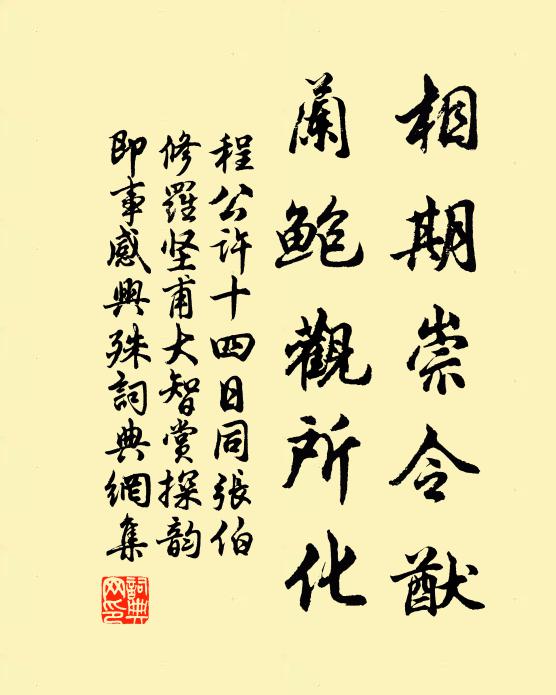 相期崇令猷
蘭鮑觀所化
程公许十四日同張伯
修羅坚甫大智賞探韵
即事感興殊詞典網集
詞典网印